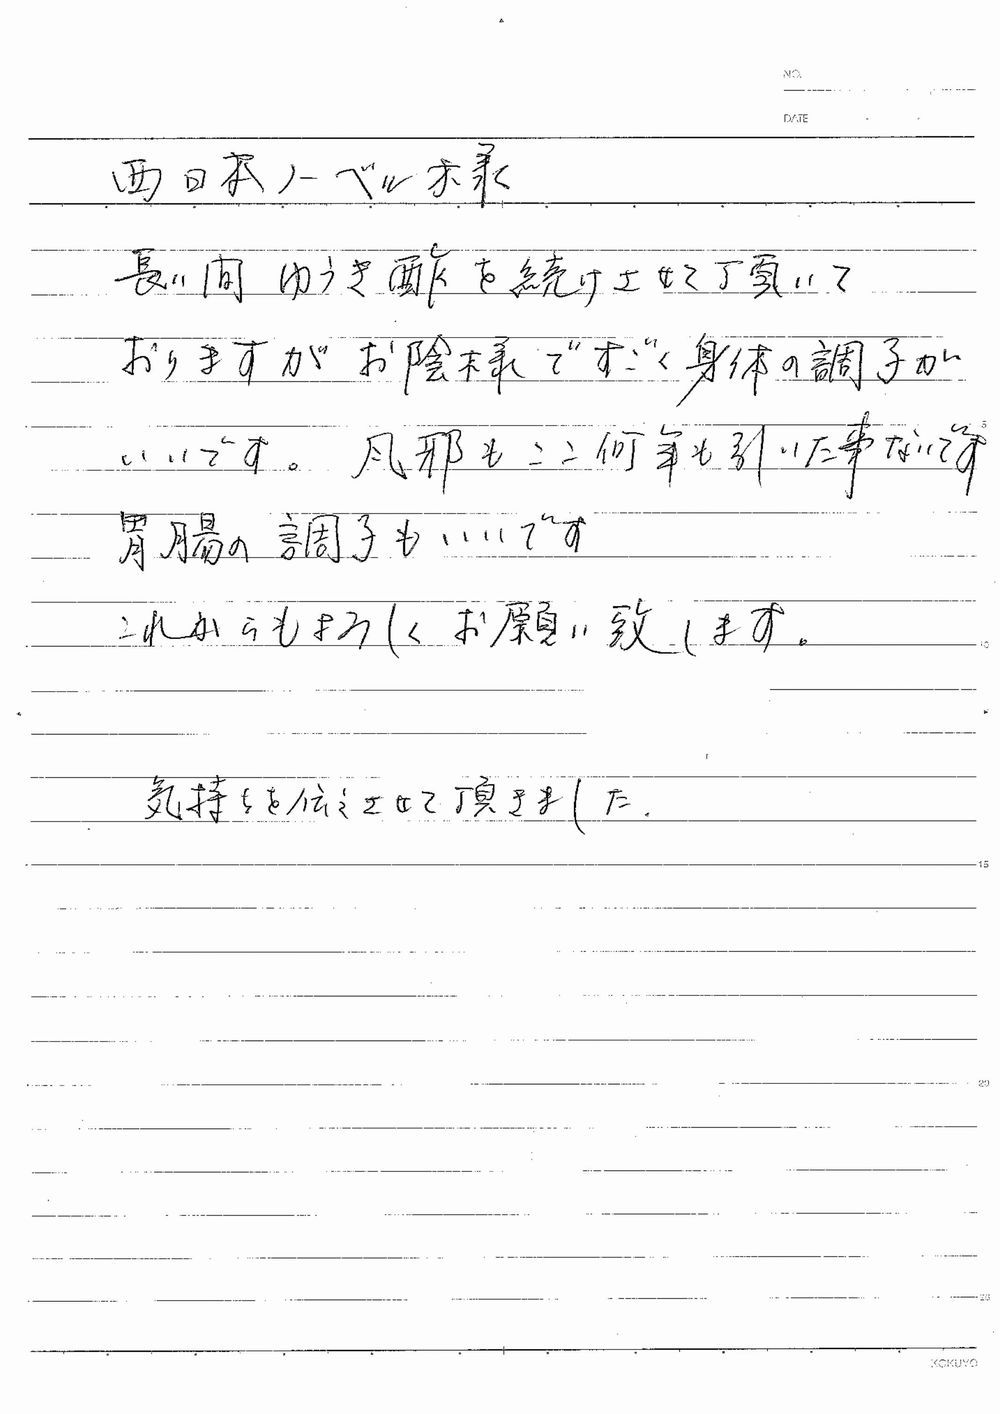 NO.
DATE
西日本ノーベル様
長い間 ゆうき酢を続けさせて頂いて
おりますが お陰様ですごく身体の調子が
いいです。 風邪もここ何年も引いた事ないです
胃腸の調子もいいです
これからもよろしくお願い致します。
気持ちを伝えさせて頂きました.
5
10
15
20
25
KOKUYO